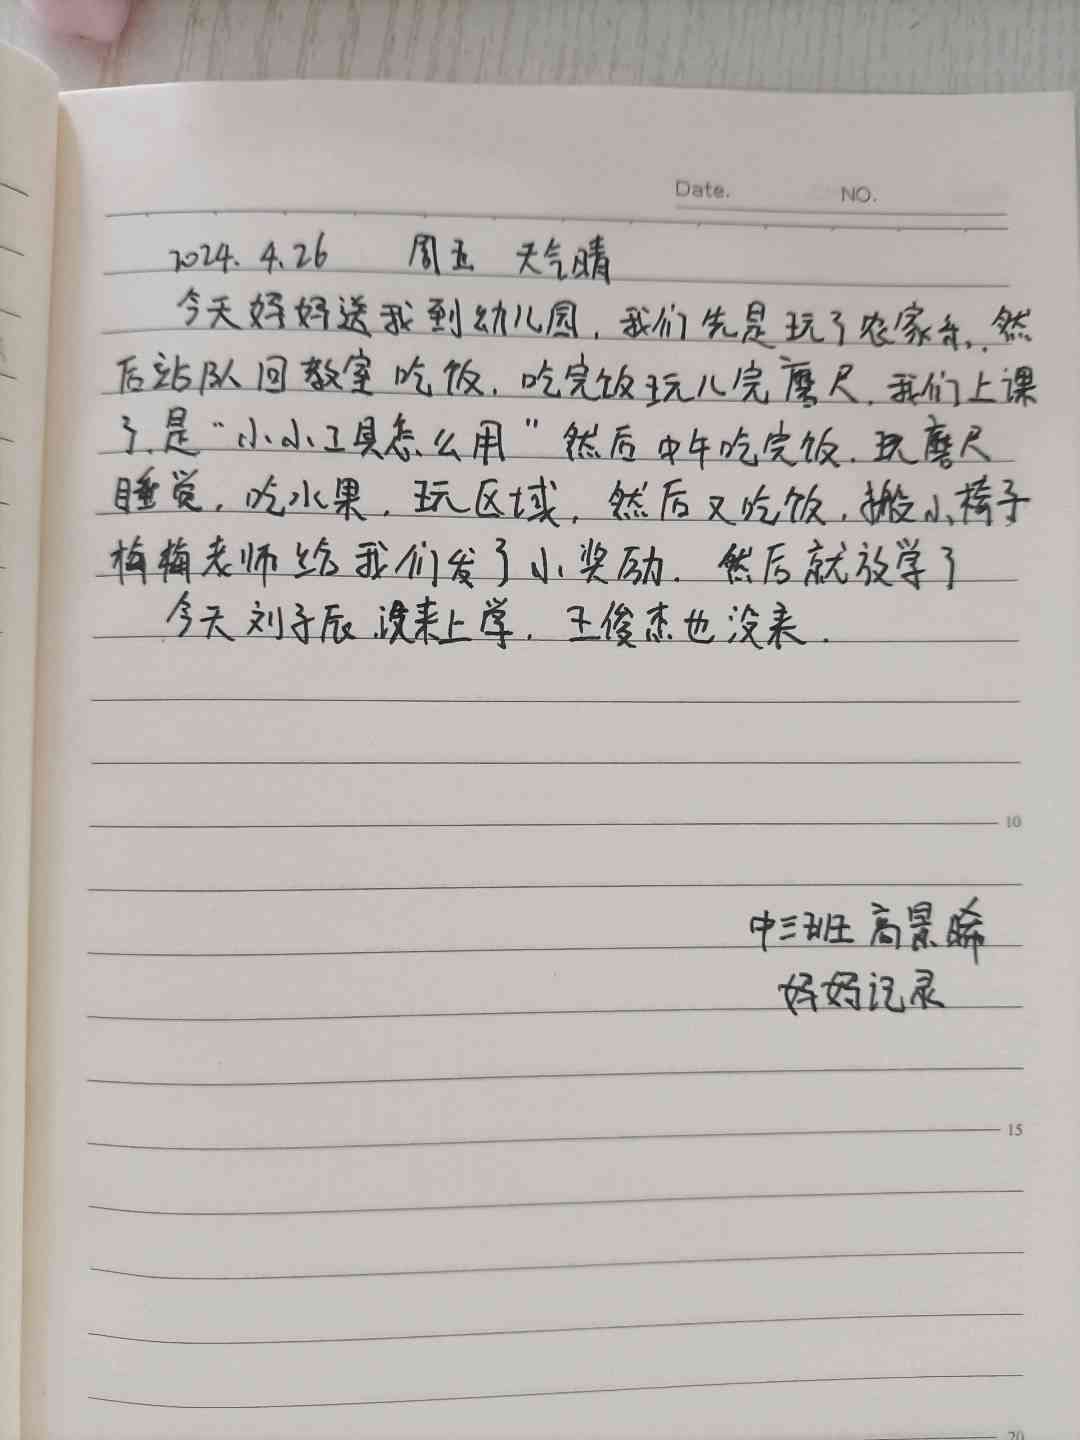 Date. NO.
2024.4.26 周五 天气晴
今天妈妈送我到幼儿园,我们先是玩了农家乐,然
后站队回教室吃饭,吃完饭玩儿完磨尺,我们上课
了是“小小工具怎么用”然后中午吃完饭.玩磨尺
睡觉,吃水果,玩区域,然后又吃饭,搬小椅子
梅梅老师给我们发了小奖励.然后就放学了
今天刘子辰没来上学,王俊杰也没来.
10
中三班 高景晞
妈妈记录
15
20